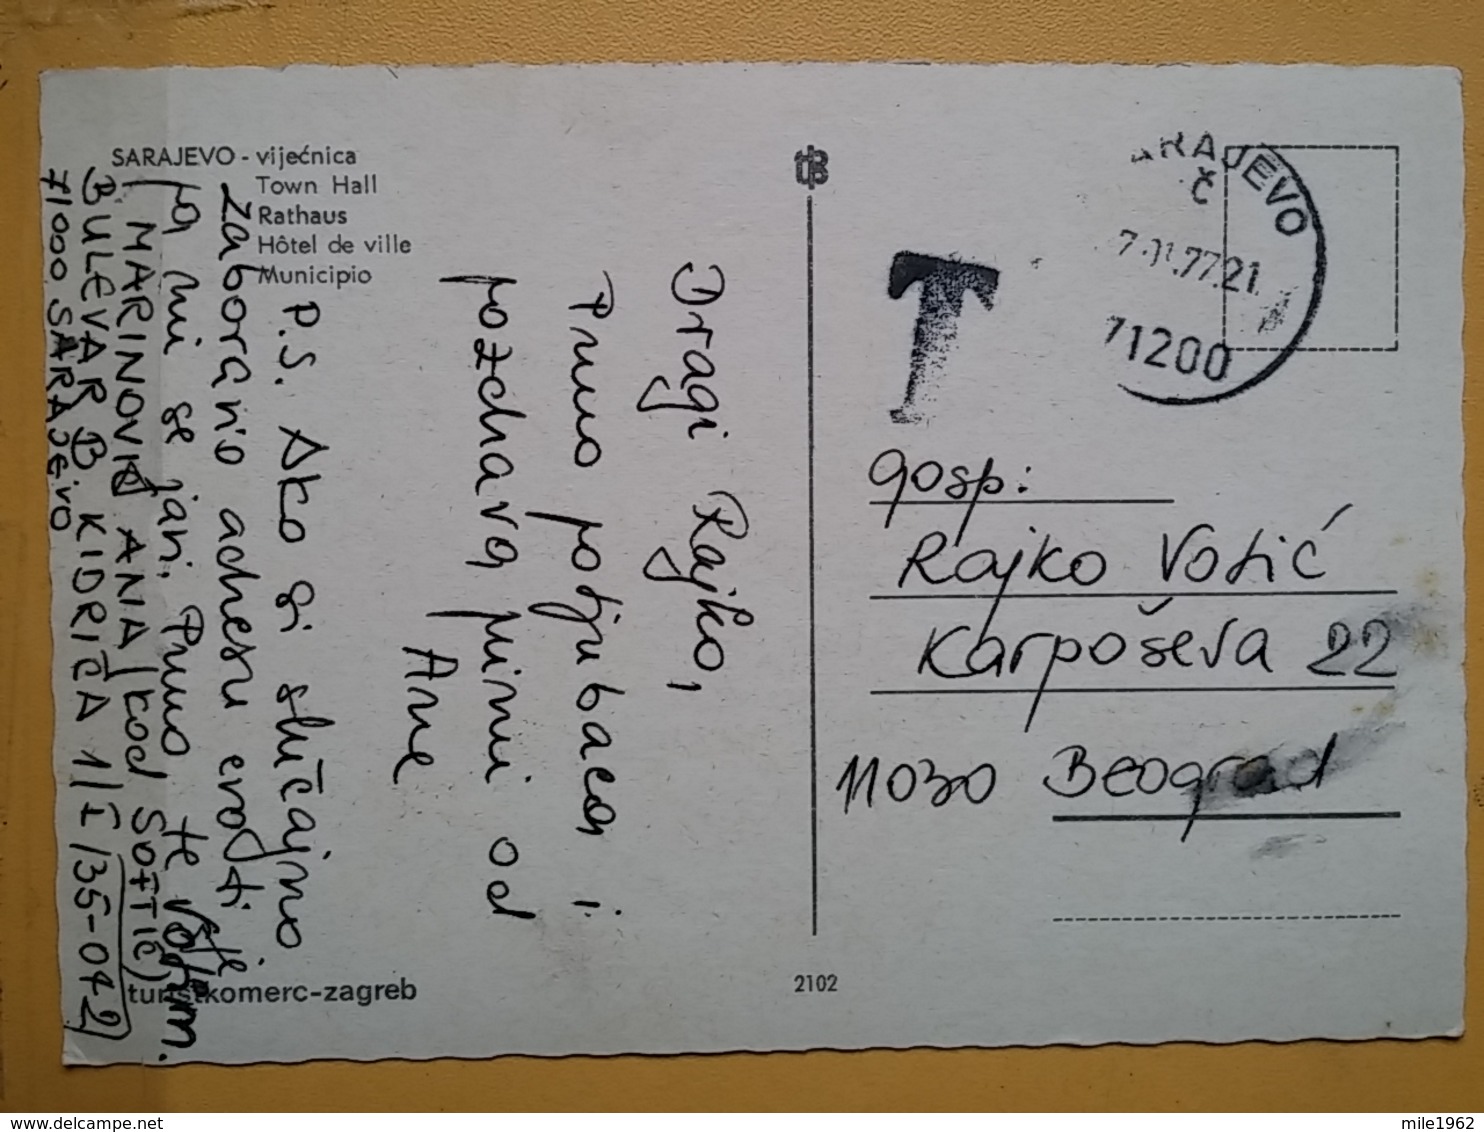 SARAJEVO - vijećnica
Town Hall
Rathaus
Hôtel de ville
Municipio
Dragi Rajko,
Puno poljubaca i
pozdrava primi od
Ane
P.S. Ako si slučajno
zaboravio adresu evo ti je
pa mi se javi. Puno te volim.
MARINOVIĆ ANA (KOD SOFTIĆ)
BULEVAR B KIDRIČA 1/I /35-042
71000 SARAJEVO
turistkomerc-zagreb
2102
T
ARAJEVO
Č
77.21
71200
gosp:
Rajko Votić
Karpoševa 22
11030 Beograd
mile1962